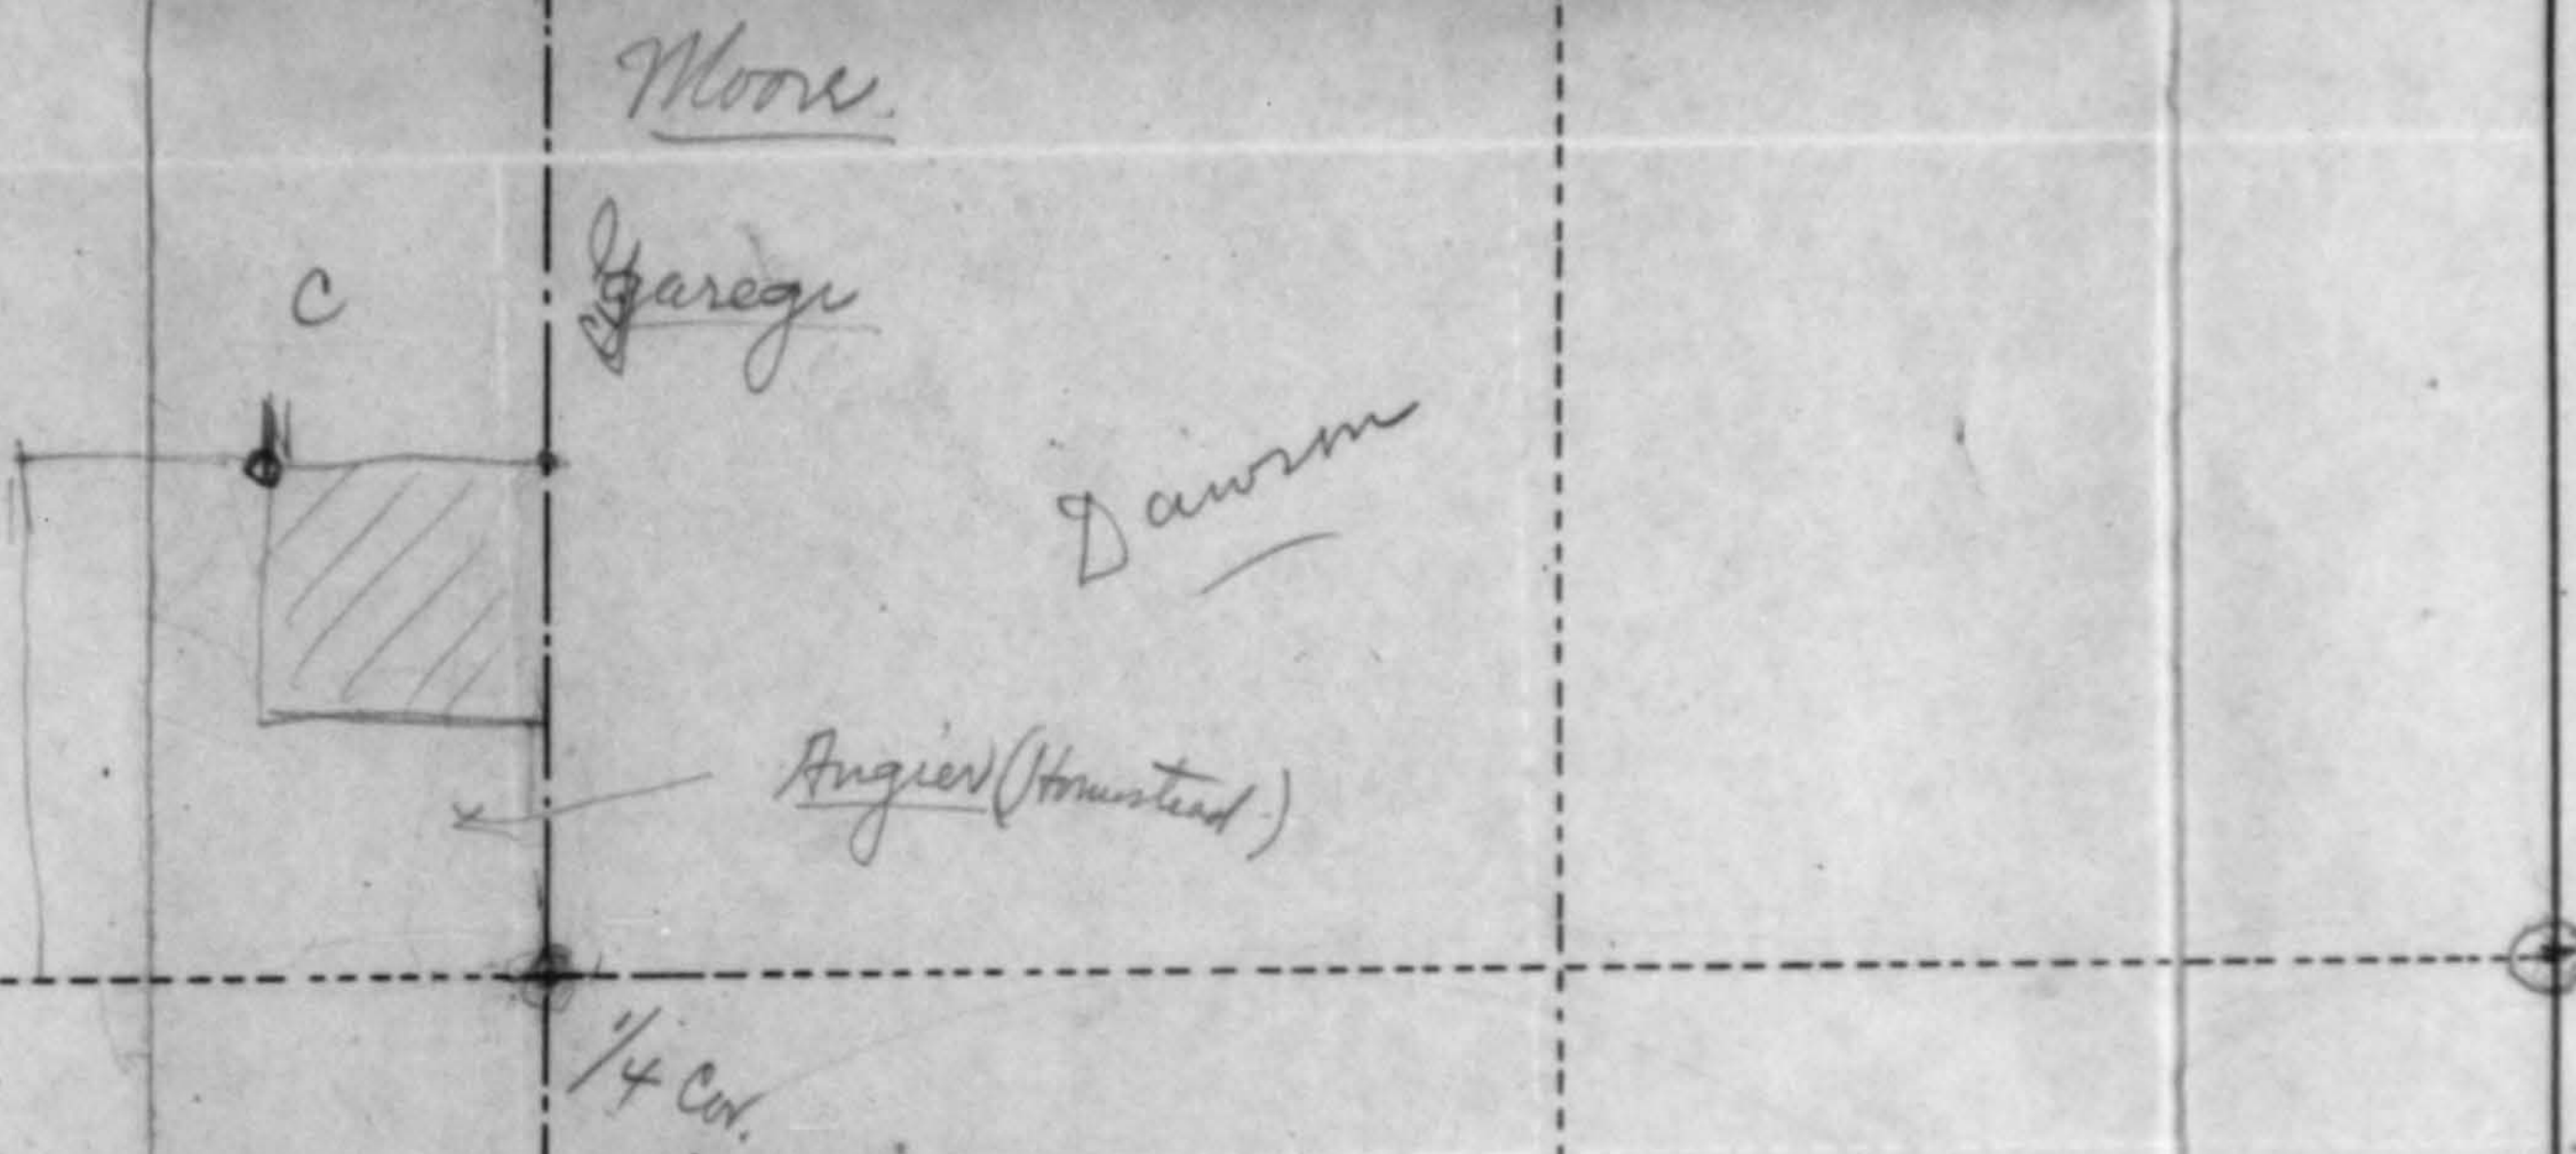 Moore
C
Yaregi
Dawson
Angier (Homestead)
1/4 Cor.